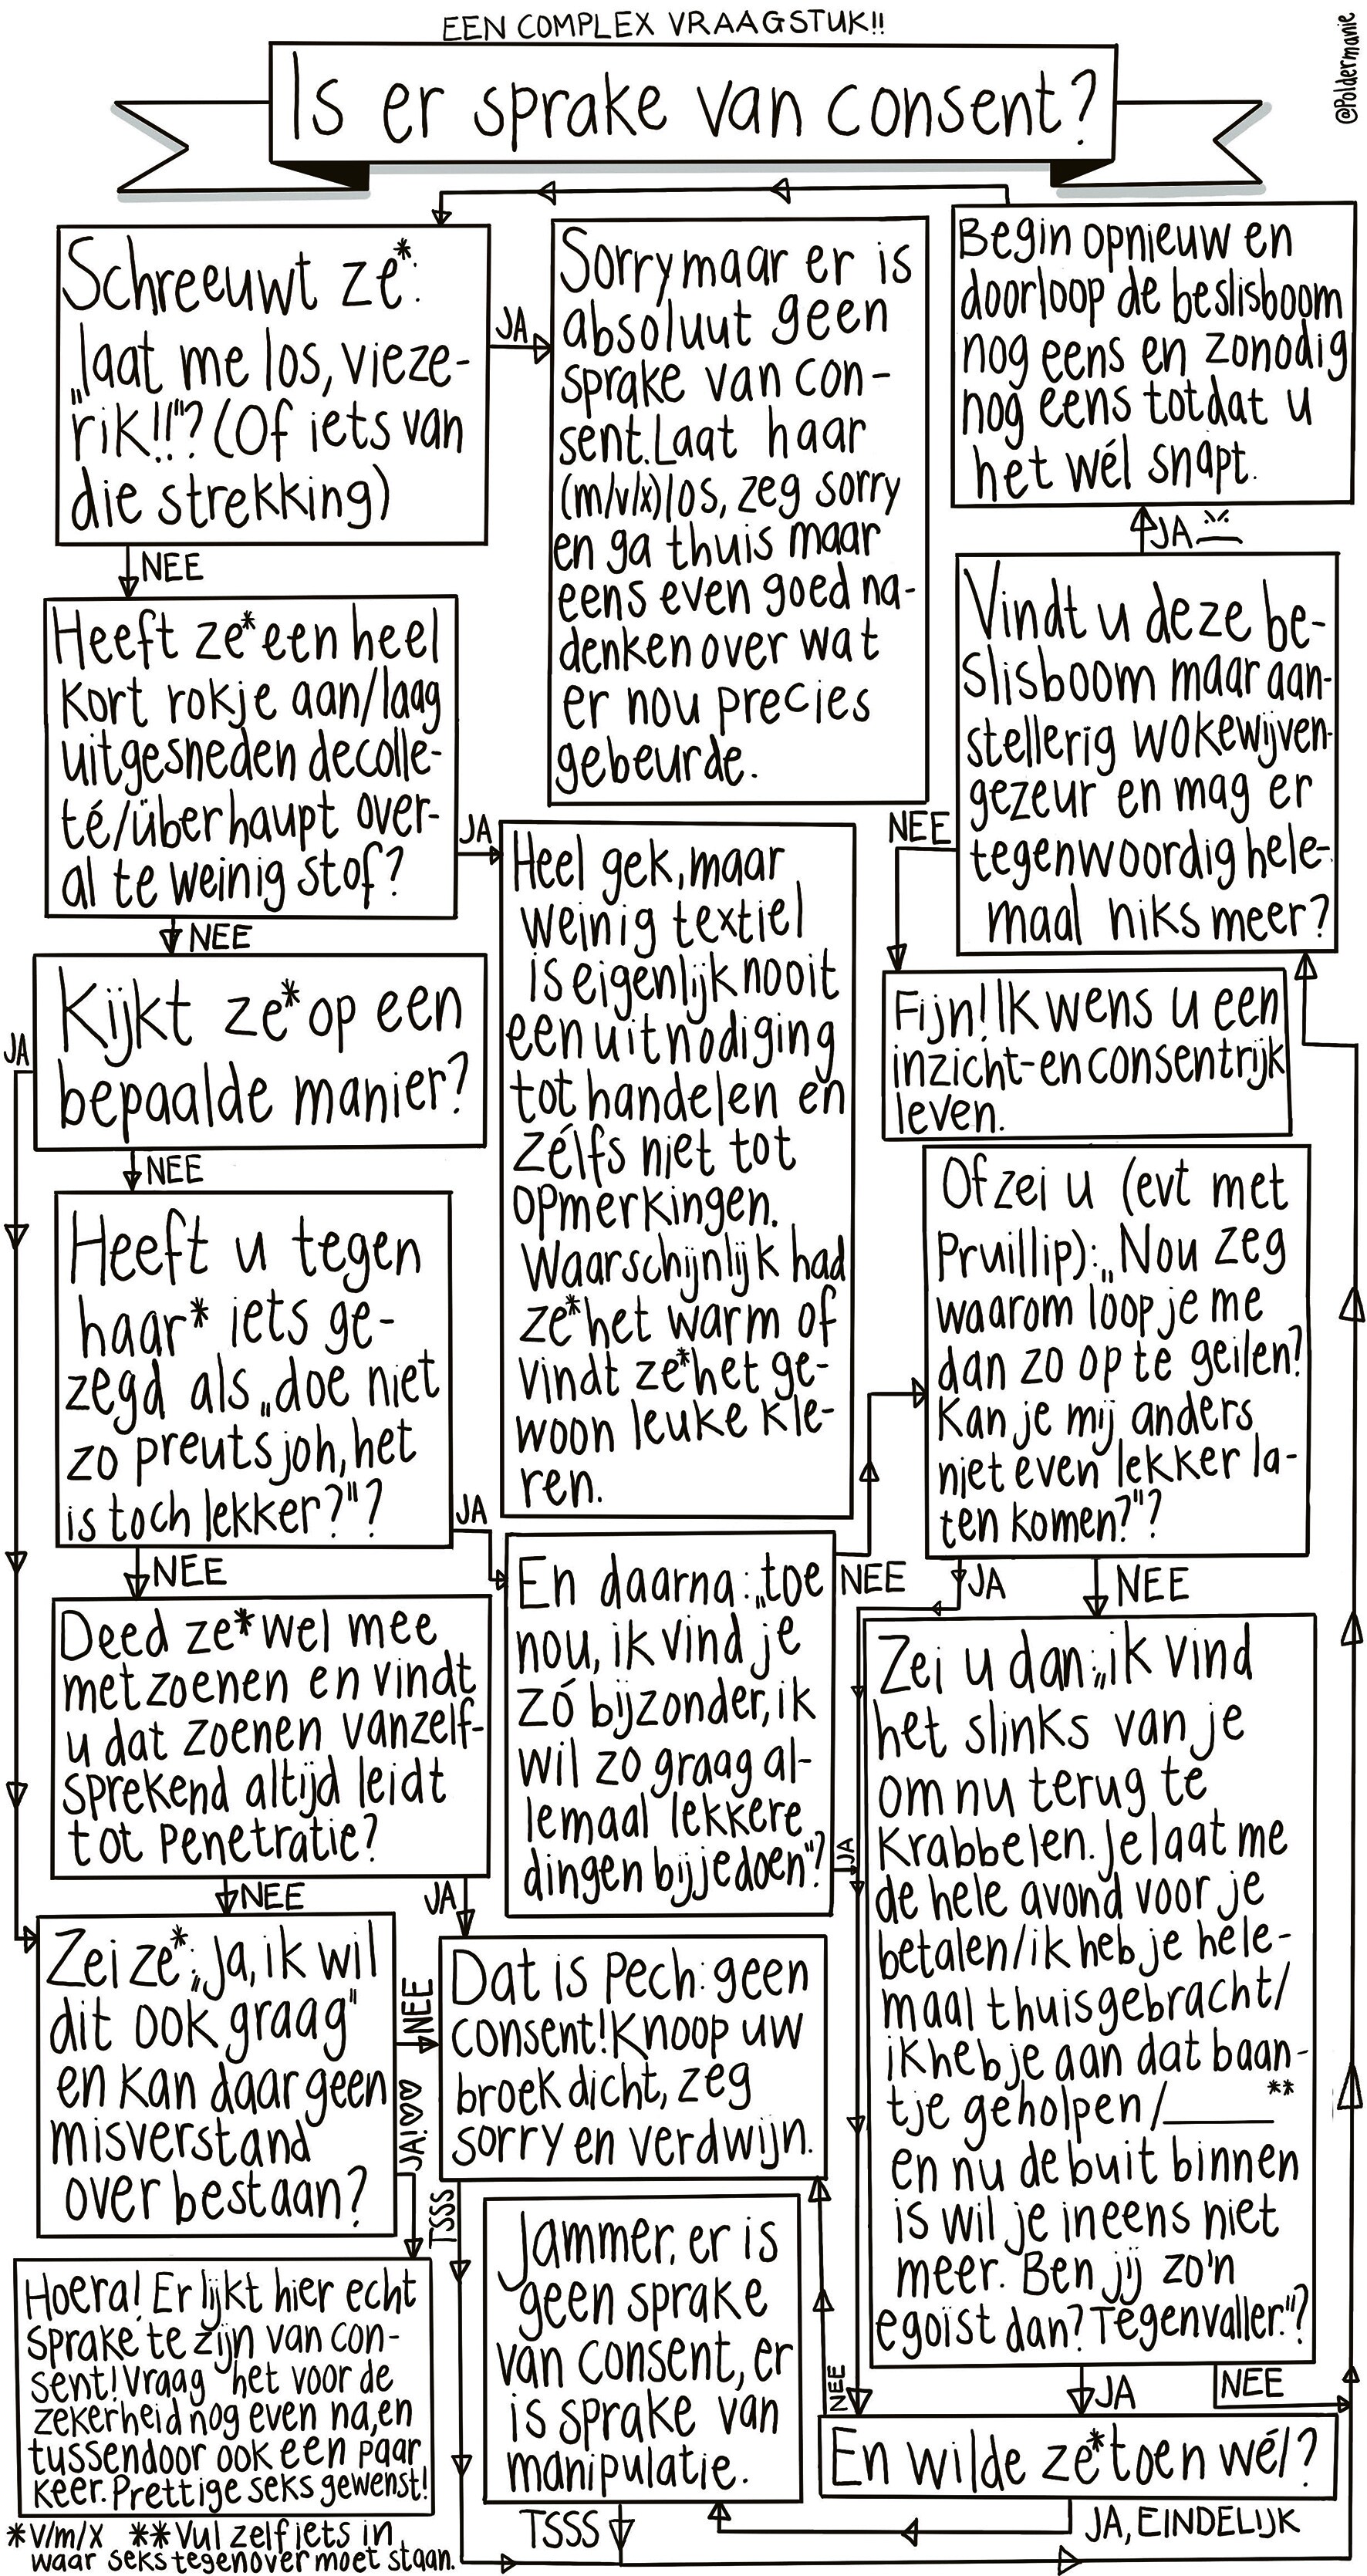 EEN COMPLEX VRAAGSTUK!!
@Poldermanie
Is er sprake van consent?
Schreeuwt ze*:
„laat me los, vieze-
rik!!"? (Of iets van
die strekking)
JA
NEE
Sorry maar er is
absoluut geen
sprake van con-
sent. Laat haar
(m/v/x) los, zeg sorry
en ga thuis maar
eens even goed na-
denken over wat
er nou precies
gebeurde.
Begin opnieuw en
doorloop de beslisboom
nog eens en zonodig
nog eens totdat u
het wél snapt.
JA
Vindt u deze be-
slisboom maar aan-
stellerig wokewijven-
gezeur en mag er
tegenwoordig hele-
maal niks meer?
NEE
Fijn! Ik wens u een
inzicht-en consentrijk
leven.
Heeft ze* een heel
kort rokje aan/laag
uitgesneden decolle-
té/überhaupt over-
al te weinig stof?
JA
NEE
Heel gek, maar
weinig textiel
is eigenlijk nooit
een uitnodiging
tot handelen en
zélfs niet tot
opmerkingen.
Waarschijnlijk had
ze* het warm of
vindt ze* het ge-
woon leuke kle-
ren.
Kijkt ze* op een
bepaalde manier?
JA
NEE
Heeft u tegen
haar* iets ge-
zegd als „doe niet
zo preuts joh, het
is toch lekker?"?
JA
NEE
En daarna: „toe
nou, ik vind je
zó bijzonder, ik
wil zo graag al-
lemaal lekkere
dingen bij je doen"?
NEE
JA
Of zei u (evt met
Pruillip): „Nou zeg
waarom loop je me
dan zo op te geilen?
Kan je mij anders
niet even lekker la-
ten komen?"?
JA
NEE
Zei u dan: „ik vind
het slinks van je
om nu terug te
krabbelen. Je laat me
de hele avond voor je
betalen/ik heb je hele-
maal thuisgebracht/
ik heb je aan dat baan-
tje geholpen/______**
en nu de buit binnen
is wil je ineens niet
meer. Ben jij zo'n
egoïst dan? Tegenvaller."?
JA
NEE
Deed ze* wel mee
met zoenen en vindt
u dat zoenen vanzelf-
sprekend altijd leidt
tot penetratie?
NEE
JA
Zei ze*: „Ja, ik wil
dit ook graag"
en kan daar geen
misverstand
over bestaan?
NEE
JA!♡♡
Dat is Pech: geen
consent! Knoop uw
broek dicht, zeg
sorry en verdwijn.
TSSS
Hoera! Er lijkt hier echt
sprake te zijn van con-
sent! Vraag het voor de
zekerheid nog even na, en
tussendoor ook een paar
keer. Prettige seks gewenst!
Jammer, er is
geen sprake
van consent, er
is sprake van
manipulatie.
TSSS
NEE
En wilde ze* toen wél?
JA, EINDELIJK
*v/m/x **Vul zelf iets in,
waar seks tegenover moet staan.